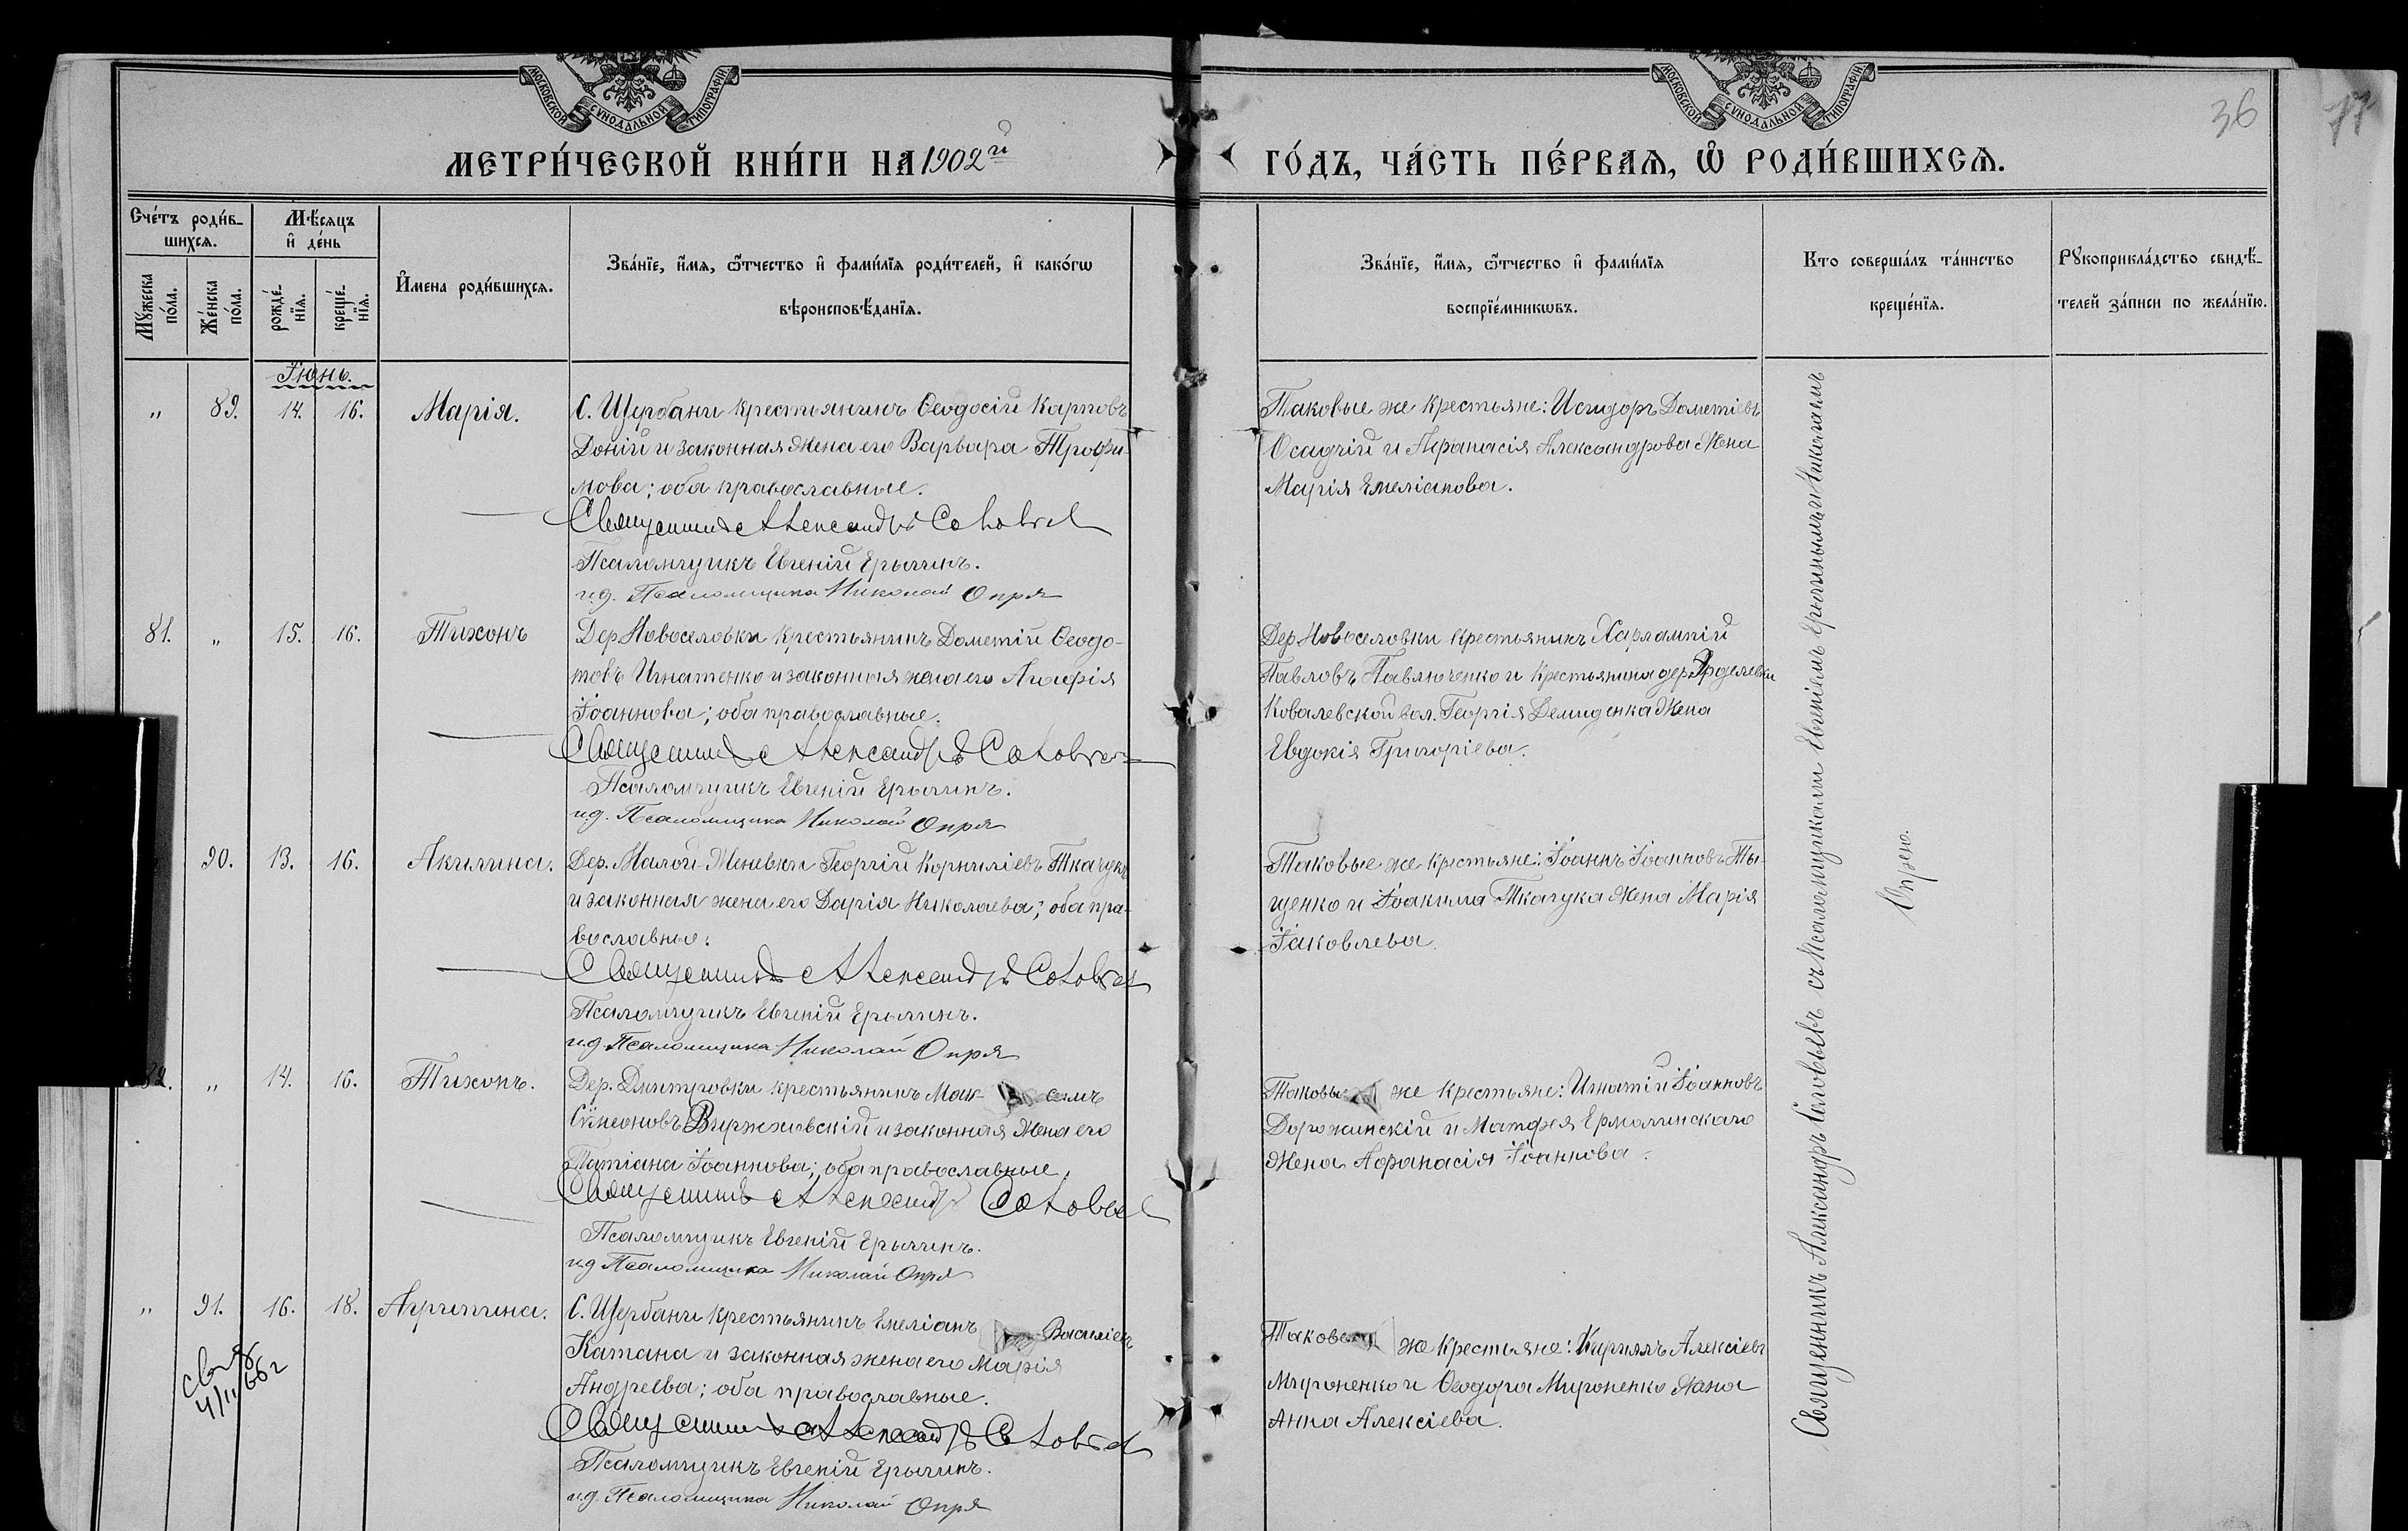 МОСКОВСКОЙ СУНОДАЛЬНОЙ ТИПОГРАФІИ.
МОСКОВСКОЙ СУНОДАЛЬНОЙ ТИПОГРАФІИ.
36
77
МЕТРИ́ЧЕСКОЙ КНИ́ГИ НА 1902й
ГО́ДЪ, ЧА́СТЬ ПЕ́РВАѦ, Ѡ҆ РОДИ́ВШИХСѦ.
Сче́тъ роди́в-
шихсѧ.
Мѣ́сѧцъ
и҆ де́нь
Мꙋ́жеска
по́ла.
Же́нска
по́ла.
рожде́-
нїѧ.
креще́-
нїѧ.
И҆мена роди́вшихсѧ.
Зва́нїе, и҆́мѧ, ѻ҆́тчество и҆ фами́лїѧ роди́телей, и҆ како́гѡ
вѣроисповѣ́данїѧ.
Зва́нїе, и҆́мѧ, ѻ҆́тчество и҆ фами́лїѧ
воспрїе́мникѡвъ.
Кто соверша́лъ та́инство
креще́нїѧ.
Рꙋкоприкла́дство свидѣ́-
телей за́писи по жела́нїю.
Іюнь.
„ 89. 14. 16. Марія.
С. Щербани крестьянинъ Ѳеодосій Карповъ
Доній и законная жена его Варвара Трофи-
мова; оба православные.
Священникъ Александръ Соловьев
Псаломщикъ Евгеній Ерыгинъ.
и.д. Псаломщика Николай Опря
Таковые же крестьяне: Исидоръ Дометіевъ
Осадчій и Аѳанасія Александрова жена
Марія Емеліанова.
81. „ 15. 16. Тихонъ
Дер. Новоселовки крестьянинъ Дометій Ѳеодо-
товъ Игнатенко и законная жена его Агафія
Іоаннова; оба православные.
Священникъ Александръ Соловьев
Псаломщикъ Евгеній Ерыгинъ.
и.д. Псаломщика Николай Опря
Дер. Новоселовки крестьянинъ Харлампій
Павловъ Павлюченко и крестьянина дер.
Ковалевской вол. Георгія Демиденка жена
Евдокія Григоріева.
90. 13. 16. Акилина.
Дер. Малой Меневки Георгій Корниліевъ Ткачукъ
и законная жена его Дарія Николаева; оба пра-
вославные.
Священникъ Александръ Соловьев
Псаломщикъ Евгеній Ерыгинъ.
и.д. Псаломщика Николай Опря
Таковые же крестьяне: Іоаннъ Іоанновъ Ты-
щенко и Іоакима Ткачука жена Марія
Іаковлева.
82. „ 14. 16. Тихонъ.
Дер. Дмитровки крестьянинъ Мак- симъ
Сѵмеоновъ Виржховскій и законная жена его
Татіана Іоаннова; оба православные.
Священникъ Александръ Соловьев
Псаломщикъ Евгеній Ерыгинъ.
и.д. Псаломщика Николай Опря
Таковые же крестьяне: Игнатій Іоанновъ
Дорожинскій и Матфея Ермолинскаго
жена Аѳанасія Іоаннова.
„ 91. 16. 18. Агрипина.
С. Щербани крестьянинъ Емеліанъ Василіевъ
Катана и законная жена его Марія
Андреева; оба православные.
Священникъ Александръ Соловьев
Псаломщикъ Евгеній Ерыгинъ.
и.д. Псаломщика Николай Опря
Таковые же крестьяне: Кириллъ Алексіевъ
Мироненко и Ѳеодора Мироненко жена
Анна Алексіева.
4/II 66 г
Священникъ Александръ Соловьевъ съ Псаломщиками Евгеніемъ Ерыгинымъ и Николаемъ
Опрею.